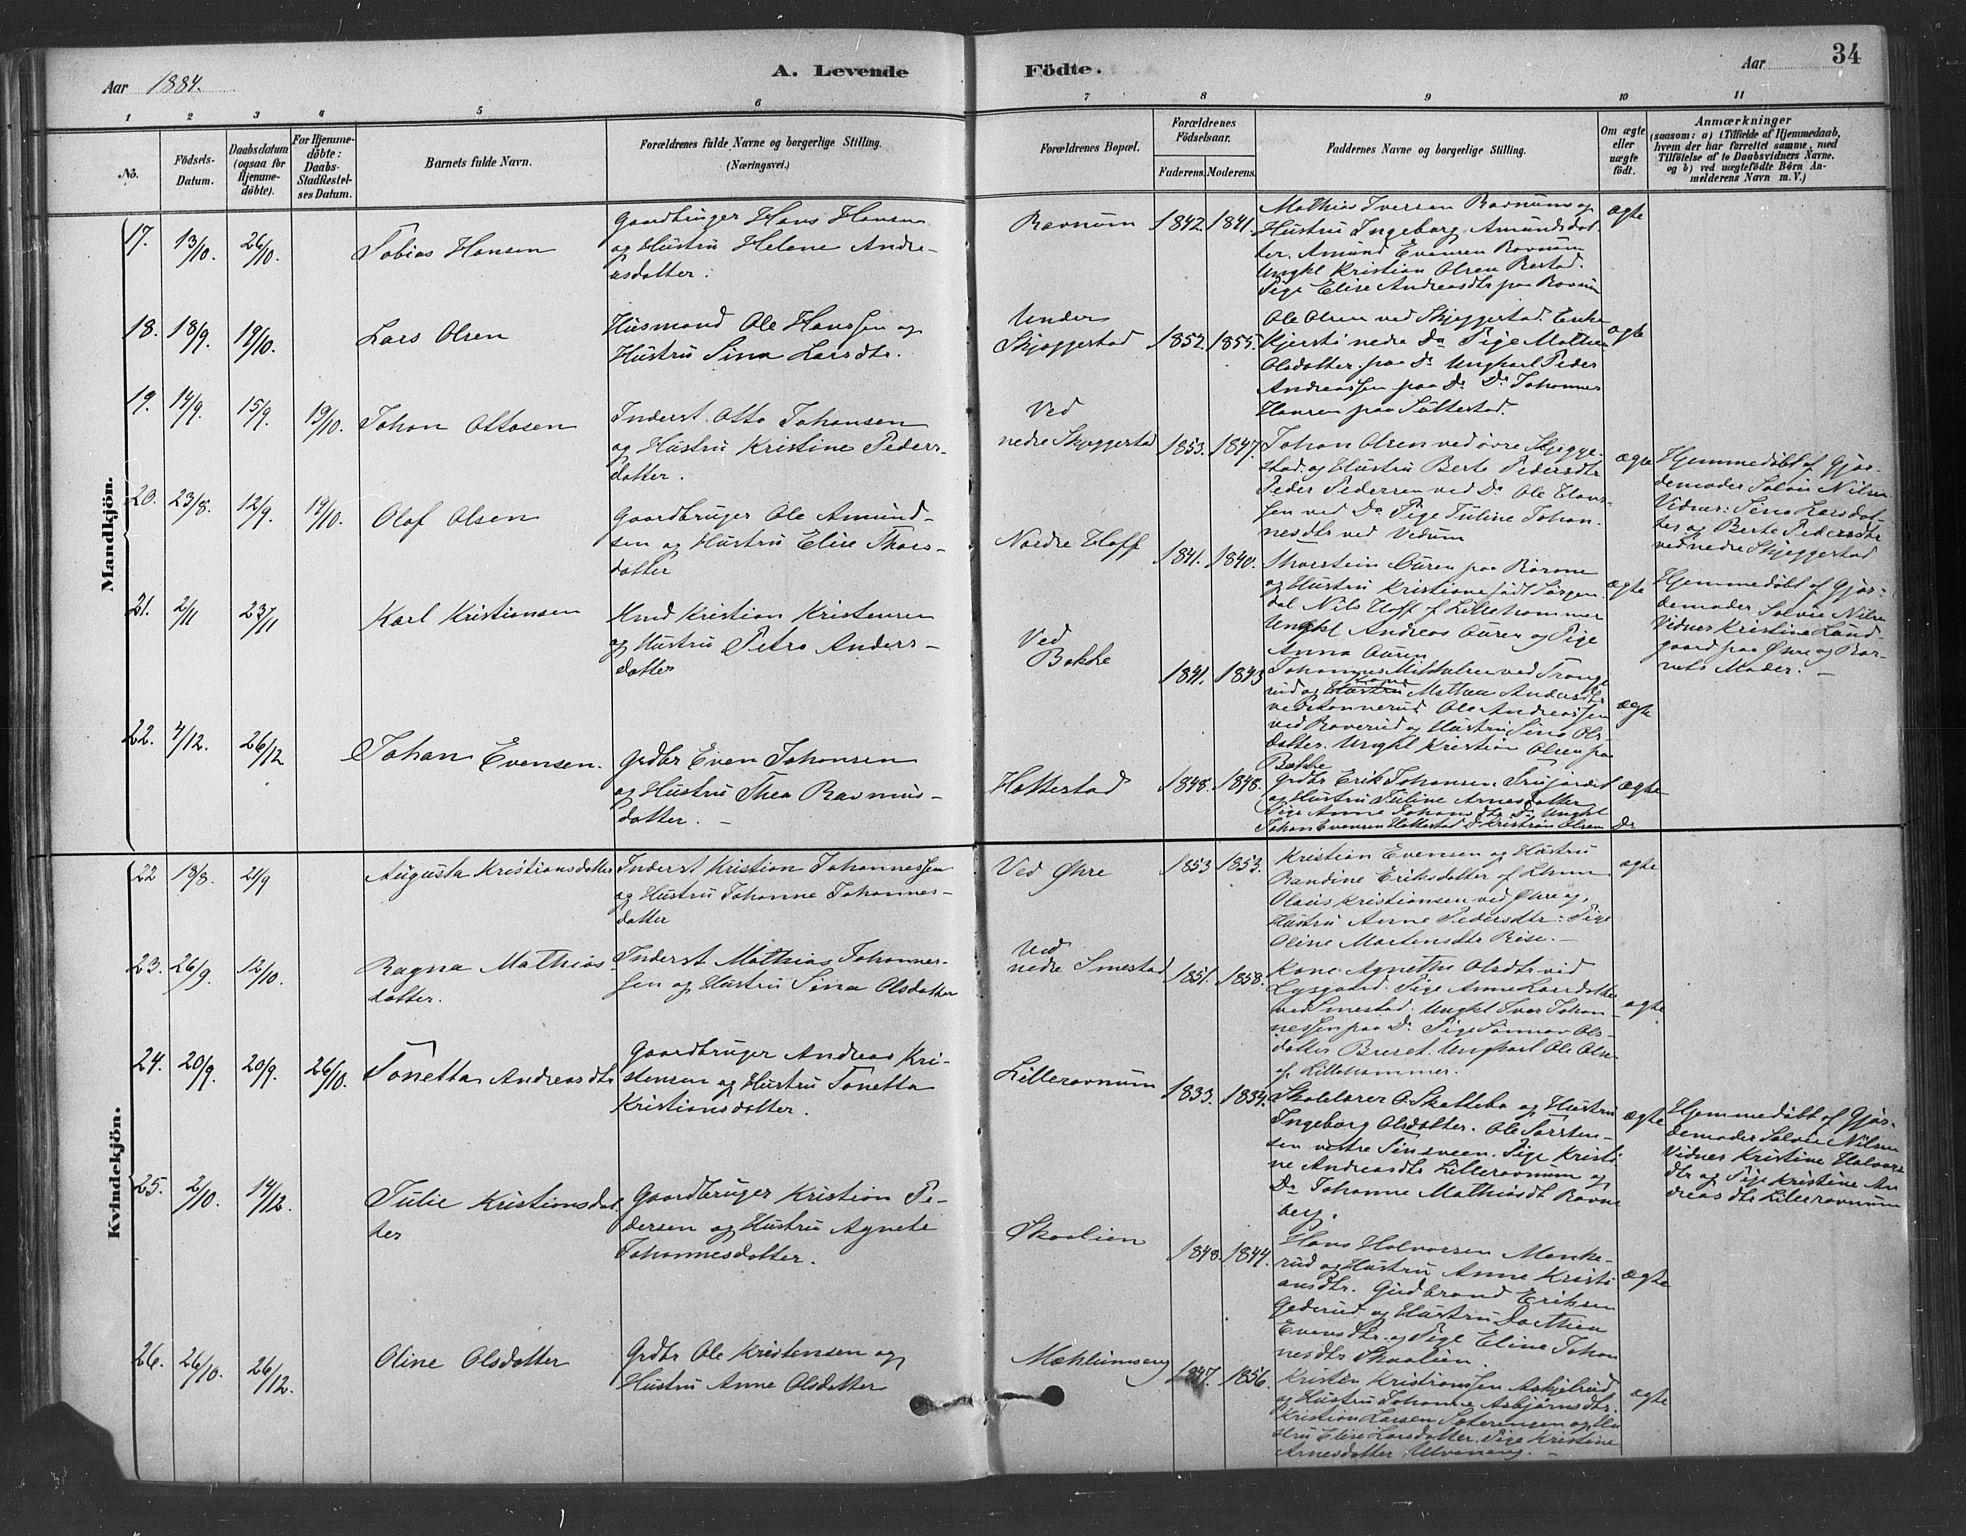 34
Aar 1884.
A. Levende
Födte.
Aar
1 2 3 4 5 6 7 8 9 10 11
No.
Födsels-
Datum.
Daabsdatum
(ogsaa för
Hjemme-
döbte).
For Hjemme-
döbte:
Daabs-
Stadfæstel-
ses Datum.
Barnets fulde Navn.
Forældrenes fulde Navne og borgerlige Stilling.
(Næringsvei.)
Forældrenes Bopæl.
Forældrenes
Födselsaar.
Faderens. Moderens.
Faddernes Navne og borgerlige Stilling.
Om ægte
eller
uægte
födt.
Anmærkninger
(saasom: a) i Tilfælde af Hjemmedaab,
hvem der har forrettet samme, med
Tilföielse af to Daabsvidners Navne.
og b) ved uægtefödte Børn An-
melderens Navn m. V.)
Mandkjön.
17. 13/10. 26/10. Tobias Hansen
Gaardbruger Hans Hansen
og Hustru Helene Andre-
asdatter.
Ravnum 1842. 1841.
Mathias Iversen Ravnum og
Hustru Ingeborg Amundsdat-
ter. Amund Evensen Ravnum
Ungkl Kristian Olsen Berstad.
Pige Elise Andreasdtr paa Ravnum
ægte
18. 18/9. 19/10. Lars Olsen
Husmand Ole Hanssen og
Hustru Sina Larsdtr.
Under
Skjæggestad 1852. 1855.
Ole Olsen ved Skjeggestad. Enke
Kjersti nedre Do Pige Mathea
Olsdatter paa Do Ungkarl Peder
Andreassen paa Do Do Johannes
Hansen paa Sültestad.
ægte
19. 14/9. 15/9. 19/10. Johan Ottosen
Inderst. Otto Johansen
og Hustru Kristine Peders-
datter.
Ved
nedre Skjeggestad 1853. 1847.
Johan Olsen ved øvre Skjegge-
stad og Hustru Berte Pedersdtr
Peder Pedersen ved Do Ole Hans-
sen ved Do Pige Juline Johan-
nesdtr ved Vedum
ægte
Hjemmedöbt af Gjor-
demoder Solvei Nilsen
Vidner: Sina Larsdat-
ter og Berte Pedersdtr
ved nedre Skjeggestad
20. 23/8. 12/9. 19/10. Olaf Olsen
Gaardbruger Ole Amund-
sen og Hustru Elise Thors-
datter
Nordre Hoff 1841. 1840.
Thorstein Auren paa Rørone
og Hustru Kristiane født Jørgen-
dal Nils Hoff af Lillehammer
Ungkl Andreas Auren og Pige
Anna Auren
ægte
Hjemmedöbt af Gjor-
demoder Solvei Nilsen
Vidner Kristine Lund-
gaard paa Øhre og Bar-
nets Moder.
21. 2/11 23/11 Karl Kristiansen
Hmd Kristian Kristensen
og Hustru Petra Anders-
datter
Ved
Bakke 1841. 1843
Johannes Mikkelsen ved
og Kone Mathea Andersdtr
Ole Andreassen
og Hustru Sina Ols-
datter. Ungkl Kristian Olsen paa
Bakke
ægte
22. 4/12. 26/12 Johan Evensen.
Grdbr Even Johansen
og Hustru Thea Rasmus-
datter.
Hattestad 1848. 1848.
Grdbr Erik Johansen
og Hustru Juline Arnesdatter
Pige Anne Johansdtr Do Ungkl
Johan Evensen Hattestad Do Kristian Olsen Do
ægte
Kvindekjön.
22 18/8. 21/9 Augusta Kristiansdatter
Inderst Kristian Johannessen
og Hustru Johanne Johannes-
datter
Ved Øhre 1853 1853.
Kristian Evensen og Hustru
Randine Eriksdatter af
Olaus Kristiansen ved Øhre og
Hustru Anne Pedersdtr. Pige
Oline Martensdtr Rise.
ægte
23. 26/9. 12/10. Ragna Mathias
datter.
Inderst Mathias Johannes-
sen og Hustru Sina Olsdatter
Ved
nedre Smestad 1851. 1858.
Kone Agnethe Olsdtr ved
Lysgaard. Pige Anne Larsdatter
ved Smestad. Ungkl Iver Johan-
nessen paa Do Pige Sönnøv Ols-
datter Breset. Ungkarl Ole Olsen
af Lillehammer.
ægte
24. 20/9. 20/9. 26/10. Tonetta Andreasdtr
Gaardbruger Andreas Kri-
stensen og Hustru Tonetta
Kristiansdatter.
Lilleravnum 1833. 1834.
Skolelærer O. Skattebo og Hustru
Ingeborg Olsdatter. Ole
sen vestre Sinsveen. Pige Kristi-
ne Andreasdtr Lilleravnum og
Do Johanne Mathiasdt Ravne
berg.
ægte
Hjemmedöbt af Gjor-
demoder Solvei Nilsen
Vidner Kristine Halvors
dtr og Pige Kristine An
dreasdtr Lilleravnum
25. 2/10. 14/12. Julie Kristiansdat
ter
Gaardbruger Kristian Pe-
dersen og Hustru Agnete
Johannesdatter.
Skaalien 1848. 1844.
Hans Halvorsen Manke-
rud og Hustru Anne Kristi
ansdtr. Gudbrand Eriksen
Gederud og Hustru Dorthea
Evensdtr. og Pige Eline Johan
nesdtr Skaalien.
ægte
26. 26/10. 26/12. Oline Olsdatter
Grdbr Ole Kristensen og
Hustru Anne Olsdatter
Mæhlumseng 1847. 1856.
Kristen Kristiansen Askjelrud
og Hustru Johanne Asbjørnsdtr.
Kristian Larsen og Hu
stru Elise Larsdatter. Pige Kristine
Arnesdatter Ulveneng.
ægte